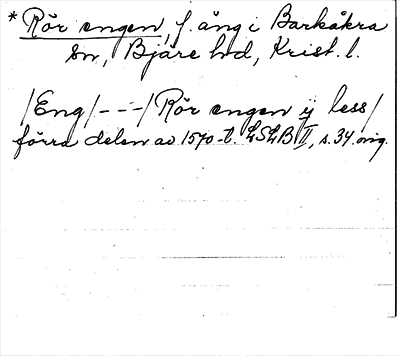 * Rör engen, f. äng i Barkåkra
sn, Bjäre hd, Krist. l.
/Eng/---/Rör engen ij less/
förra delen av 1570-t. LSLB II, s. 34 orig.